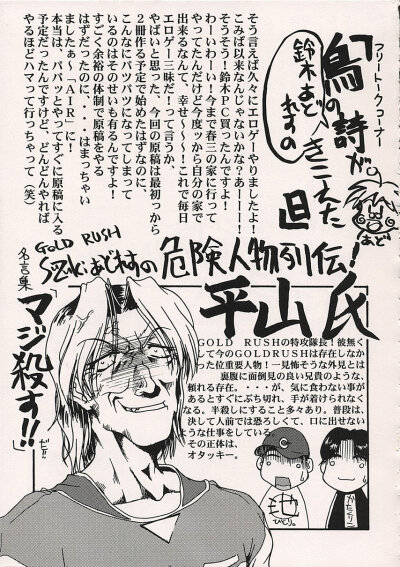 フリートークコーナー
鈴木あどれすの
「鳥の詩が
きこえた日」
あど
そう言えば久々にエロゲーやりましたよ!
こみぱ以来なんじゃないかな?あーーー!
そうそう!鈴木PC買ったんですよ!
わーいわーい!今まで春三の家に行って
やってたんだけど今度っから自分の家で
出来るなんて、幸せ~~!これで毎日
エロゲー三昧だ!って言うか、
やばいと思った、今回の原稿は最初っから
2冊作る予定で始めたはずなのに
こんなにパツパツになってしまって
いるのはそのせいも有るんですよ!
すごく余裕の体制で原稿をやる
はずだったのに、・・はまっちゃい
ましたぁ~「AIR」に!
本当は、パパッとやってすぐに原稿に入る
予定だったんですけど、どんどんやれば
やるほどハマって行っちゃって(笑)
GOLD RUSH
Szukiあどれすの危険人物列伝!
平山氏
名言集
「マジ殺す!!」
GOLD RUSHの特攻隊長!彼無く
して今のGOLDRUSHは存在しなか
った位重要人物!一見怖そうな外見とは
裏腹に面倒見の良い兄貴のような、
頼れる存在。・・・が、気に食わない事が
あるとすぐにぶち切れ、手が着けられなく
なる。半殺しにすること多々あり。普段は、
決して人前では恐ろしくて、口に出せない
ような仕事をしている
その正体は、
オタッキー。
C